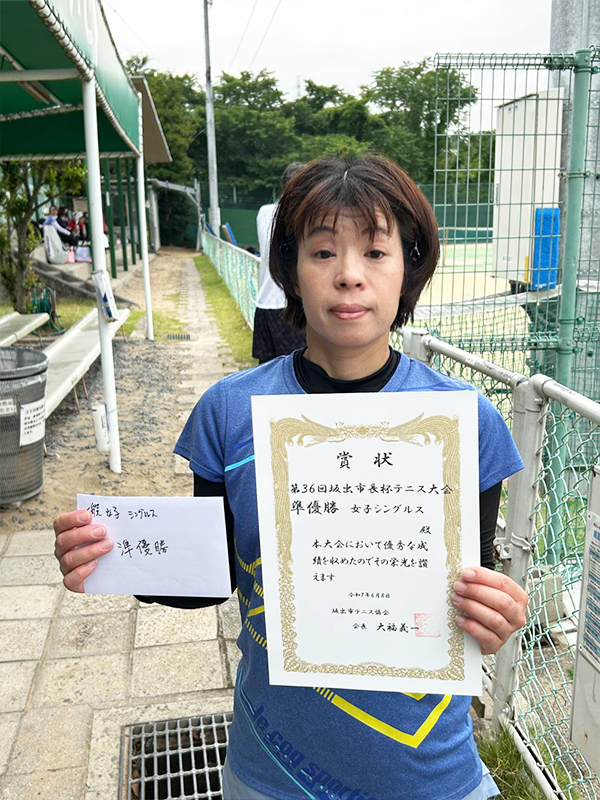 般女子 シングルス
準優勝
賞状
第36回坂出市長杯テニス大会
準優勝 女子シングルス
殿
本大会において優秀な成
績を収めたのでその栄光を讃
えます
令和7年6月8日
坂出市テニス協会
会長 大福義一
le coq sportif